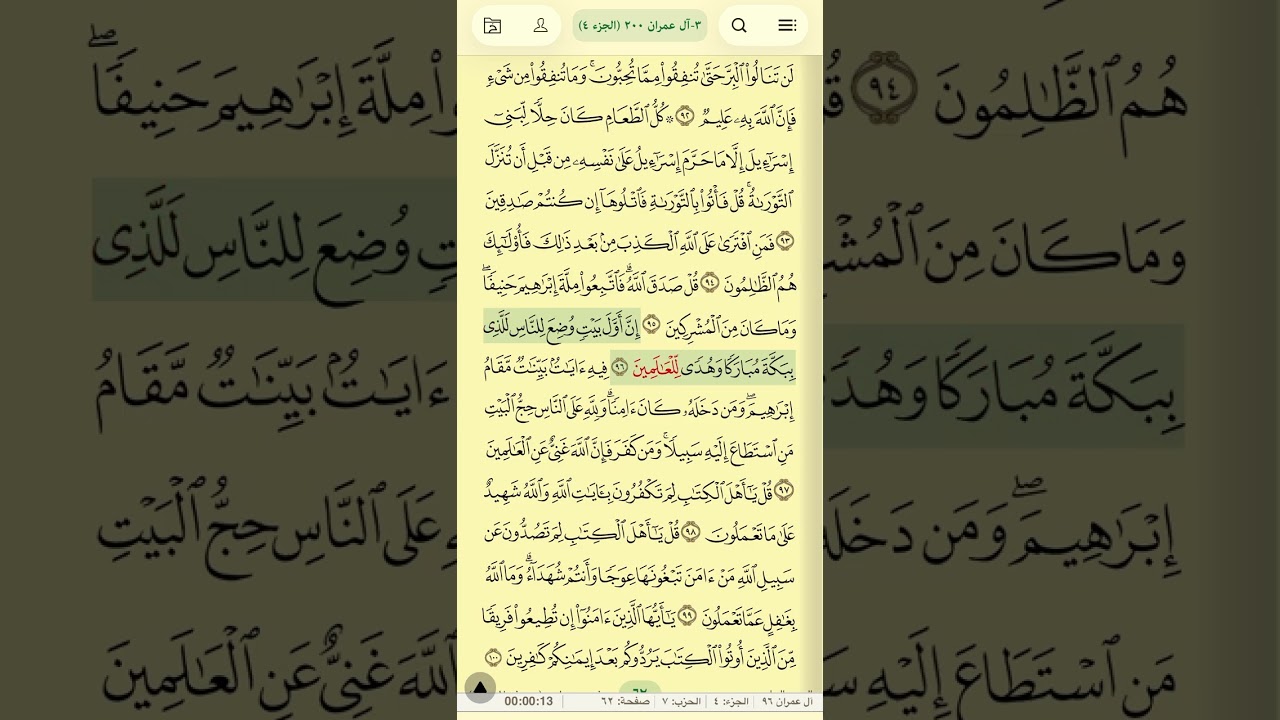 ٣-آل عمران ٢٠٠ (الجزء ٤)
لَن تَنَالُوا۟ ٱلْبِرَّ حَتَّىٰ تُنفِقُوا۟ مِمَّا تُحِبُّونَ ۚ وَمَا تُنفِقُوا۟ مِن شَىْءٍ
فَإِنَّ ٱللَّهَ بِهِۦ عَلِيمٌ ٩٢ ۞ كُلُّ ٱلطَّعَامِ كَانَ حِلًّا لِّبَنِىٓ
إِسْرَٰٓءِيلَ إِلَّا مَا حَرَّمَ إِسْرَٰٓءِيلُ عَلَىٰ نَفْسِهِۦ مِن قَبْلِ أَن تُنَزَّلَ
ٱلتَّوْرَىٰةُ ۗ قُلْ فَأْتُوا۟ بِٱلتَّوْرَىٰةِ فَٱتْلُوهَآ إِن كُنتُمْ صَٰدِقِينَ
٩٣ فَمَنِ ٱفْتَرَىٰ عَلَى ٱللَّهِ ٱلْكَذِبَ مِنۢ بَعْدِ ذَٰلِكَ فَأُو۟لَٰٓئِكَ
هُمُ ٱلظَّٰلِمُونَ ٩٤ قُلْ صَدَقَ ٱللَّهُ ۗ فَٱتَّبِعُوا۟ مِلَّةَ إِبْرَٰهِيمَ حَنِيفًا ۖ
وَمَا كَانَ مِنَ ٱلْمُشْرِكِينَ ٩٥ إِنَّ أَوَّلَ بَيْتٍ وُضِعَ لِلنَّاسِ لَلَّذِى
بِبَكَّةَ مُبَارَكًا وَهُدًى لِّلْعَٰلَمِينَ ٩٦ فِيهِ ءَايَٰتٌۢ بَيِّنَٰتٌ مَّقَامُ
إِبْرَٰهِيمَ ۖ وَمَن دَخَلَهُۥ كَانَ ءَامِنًا ۗ وَلِلَّهِ عَلَى ٱلنَّاسِ حِجُّ ٱلْبَيْتِ
مَنِ ٱسْتَطَاعَ إِلَيْهِ سَبِيلًا ۚ وَمَن كَفَرَ فَإِنَّ ٱللَّهَ غَنِىٌّ عَنِ ٱلْعَٰلَمِينَ
٩٧ قُلْ يَٰٓأَهْلَ ٱلْكِتَٰبِ لِمَ تَكْفُرُونَ بِـَٔايَٰتِ ٱللَّهِ وَٱللَّهُ شَهِيدٌ
عَلَىٰ مَا تَعْمَلُونَ ٩٨ قُلْ يَٰٓأَهْلَ ٱلْكِتَٰبِ لِمَ تَصُدُّونَ عَن
سَبِيلِ ٱللَّهِ مَنْ ءَامَنَ تَبْغُونَهَا عِوَجًا وَأَنتُمْ شُهَدَآءُ ۗ وَمَا ٱللَّهُ
بِغَٰفِلٍ عَمَّا تَعْمَلُونَ ٩٩ يَٰٓأَيُّهَا ٱلَّذِينَ ءَامَنُوٓا۟ إِن تُطِيعُوا۟ فَرِيقًا
مِّنَ ٱلَّذِينَ أُوتُوا۟ ٱلْكِتَٰبَ يَرُدُّوكُم بَعْدَ إِيمَٰنِكُمْ كَٰفِرِينَ ١٠٠
٦٢
آل عمران ٩٦ الجزء: ٤ الحزب: ٧ صفحة: ٦٢ 00:00:13